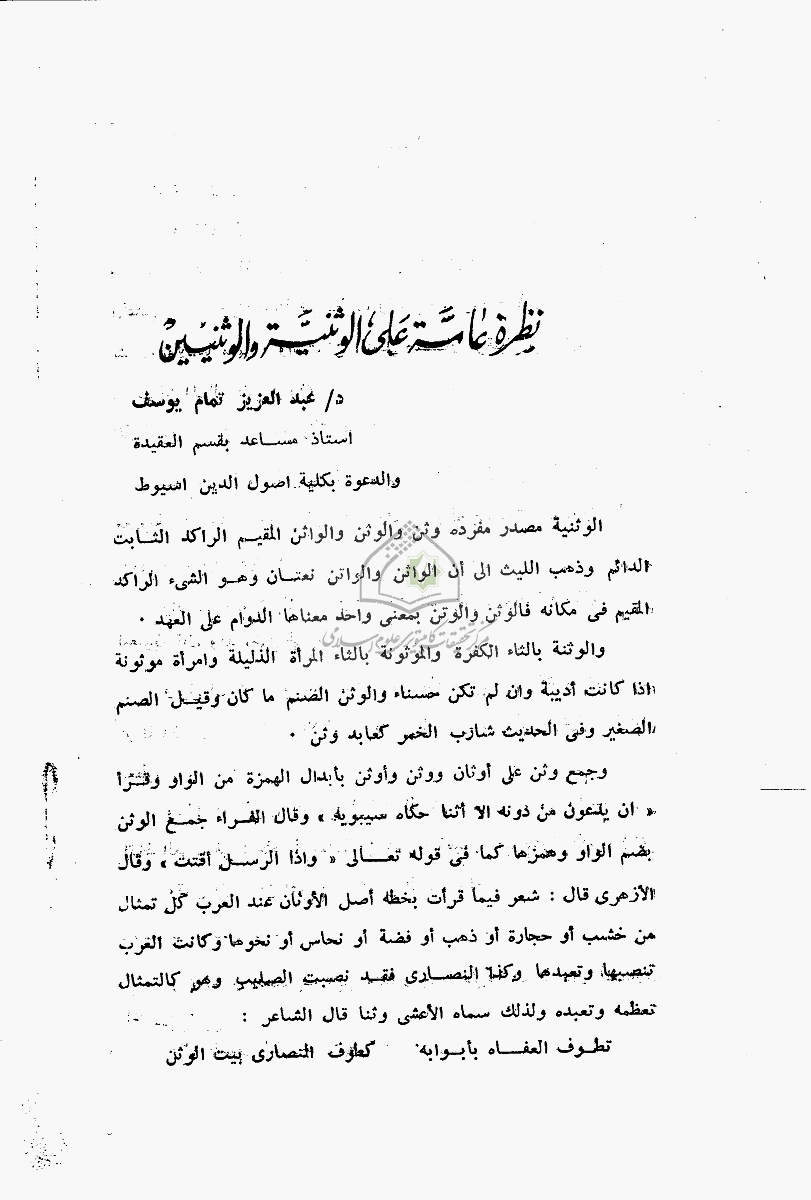 نظرة عامة على الوثنية والوثنيين
د/ عبد العزيز تمام يوسف
استاذ مساعد بقسم العقيدة
والدعوة بكلية اصول الدين اسيوط
الوثنية مصدر مفرده وثن والوثن والواثن المقيم الراكد الثابت
الدائم وذهب الليث الى أن الواثن والواتن نعتان وهو الشىء الراكد
المقيم فى مكانه فالوثن والوتن بمعنى واحد معناها الدوام على العهد .
والوثنة بالثاء الكفرة والموثونة بالثاء المرأة الذليلة وامرأة موثونة
اذا كانت أديبة وان لم تكن حسناء والوثن الصنم ما كان وقيل الصنم
الصغير وفى الحديث شارب الخمر كعابد وثن .
وجمع وثن على أوثان ووثن وأوثن بأبدال الهمزة من الواو وقرأ
« ان يدعون من دونه الا أثنا حكاه سيبويه » وقال الفراء جمع الوثن
بضم الواو وهمزها كما فى قوله تعالى « واذا الرسل أقتت » وقال
الأزهرى قال : شعر فيما قرأت بخطه أصل الأوثان عند العرب كل تمثال
من خشب أو حجارة أو ذهب أو فضة أو نحاس أو نحوها وكانت العرب
تنصبها وتعبدها وكذا النصارى فقد نصبت الصليب وهو كالتمثال
تعظمه وتعبده ولذلك سماه الأعشى وثنا قال الشاعر :
تطوف العفاه بأبوابه كطوف النصارى ببيت الوثن
مركز تحقیقات کامپیوتری علوم اسلامی